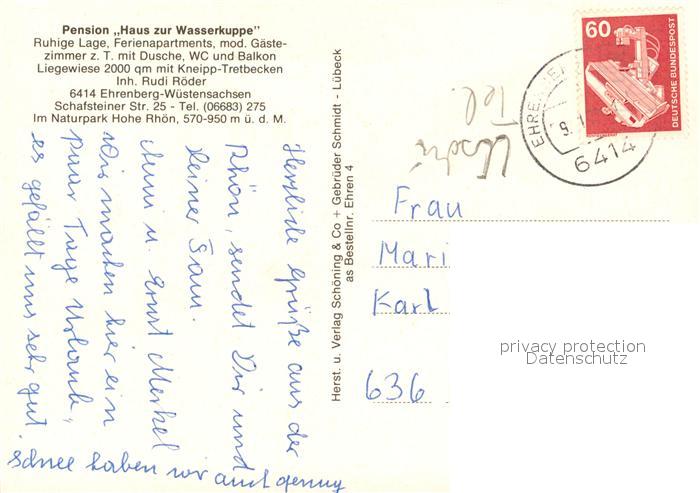 Pension „Haus zur Wasserkuppe"
Ruhige Lage, Ferienapartments, mod. Gäste-
zimmer z. T. mit Dusche, WC und Balkon
Liegewiese 2000 qm mit Kneipp-Tretbecken
Inh. Rudi Röder
6414 Ehrenberg-Wüstensachsen
Schafsteiner Str. 25 - Tel. (06683) 275
Im Naturpark Hohe Rhön, 570-950 m ü. d. M.
Herzliche Grüße aus der
Rhön, sendet Dir und
Deiner Fam.
Anni u. Ernst Merkel
Wir machen hier ein
paar Tage Urlaub,
es gefällt uns sehr gut
schnee haben wir auch genug
Herst. u. Verlag Schöning & Co + Gebrüder Schmidt - Lübeck
as Bestellnr. Ehren 4
Tel.
60
DEUTSCHE BUNDESPOST
6414
Frau
Mari
Karl
636
privacy protection
Datenschutz